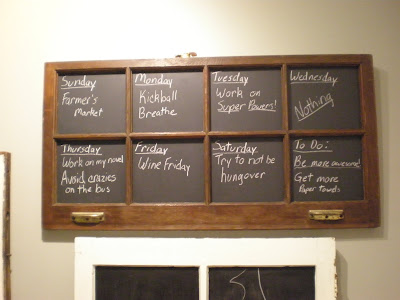 Sunday
Farmer's
Market
Monday
Kickball
Breathe
Tuesday
Work on
Super Powers!
Wednesday
Nothing
Thursday
Work on my novel
Avoid crazies
on the bus
Friday
Wine Friday
Saturday
Try to not be
hungover
To Do:
Be more awesome!
Get more
Paper towels